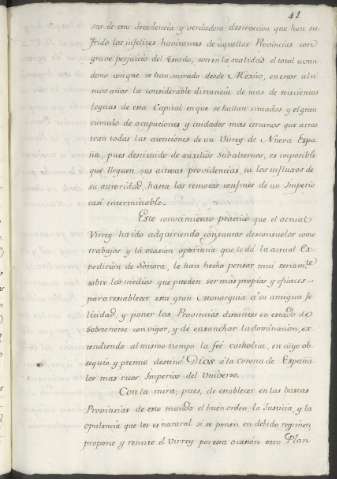 41
sas de esta decadencia y verdadera destruccion que han su
frido los infelices havitantes de aquellas Provincias con
grave perjuicio del Estado, son en la realidad el total aban
dono conque se han mirado desde Mexico, en unos al
nos años la considerable distancia de mas de seiscientas
leguas de esta Capital en que se hallan situadas y el gran
cumulo de ocupaciones y cuidados mas cercanos que arras
tran todas las atenciones de un Virrey de Nueva Espa
ña, pues destituido de auxilios subalternos, es imposible
que lleguen sus activas providencias, ni los influxos de
su autoridad, hasta los remotos confines de un Imperio
casi interminable.
Este conocimiento practico que el actual
Virrey ha ido adquiriendo con sumos desconsuelos
trabajos y la ocasion oportuna que le dá la actual Ex
pedicion de Sonora, le han hecho pensar mui seriam.te
sobre los medios que pueden ser mas propios y eficaces
para restablecer esta gran Monarquia á su antigua fe
licidad, y poner las Provincias distantes en estado de
sobstenerse con vigor, y de ensanchar la dominacion, ex
tendiendo al mismo tiempo la feé catholica, en cuyo ob
sequio y premio destinó Dios á la Corona de España
los mas ricos Imperios del Universo.
Con la mira, pues, de establecer en las bastas
Provincias de este mundo el buen orden, la Justicia, y la
opulencia que les es natural si se ponen en debido regimen,
propone y remite el Virrey por esta ocasion otro Plan